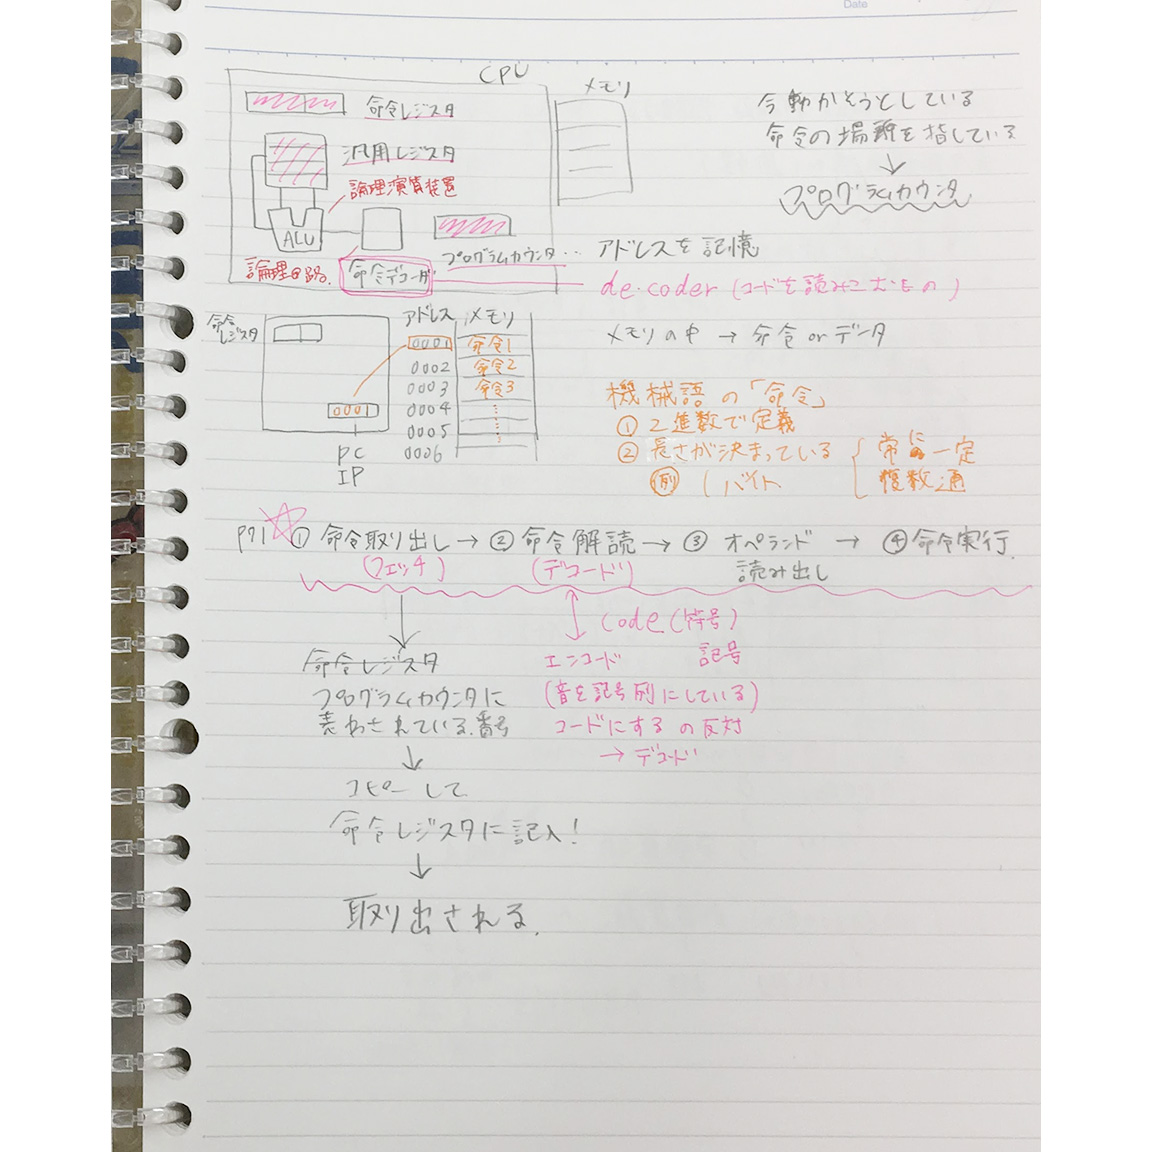 Date
CPU
メモリ
命令レジスタ
汎用レジスタ
論理演算装置
ALU
論理回路
命令デコーダ
プログラムカウンタ…アドレスを記憶
今動かそうとしている
命令の場所を指している
↓
プログラムカウンタ
de・coder (コードを読みこむもの)
命令
レジスタ
アドレス メモリ
0001 命令1
0002 命令2
0003 命令3
0004
0005
0006
0001
PC
IP
メモリの中 → 命令 or データ
機械語の「命令」
① 2進数で定義
② 長さが決まっている { 常に一定
複数通
例 1バイト
P71 ☆ ① 命令取り出し → ② 命令解読 → ③ オペランド → ④ 命令実行.
(フェッチ) (デコード) 読み出し
↓
命令レジスタ
プログラムカウンタに
表わされている番号
↓
コピーして
命令レジスタに記入!
↓
取り出される.
↕ code (符号)
エンコード 記号
(音を記号列にしている)
コードにするの反対
→ デコード